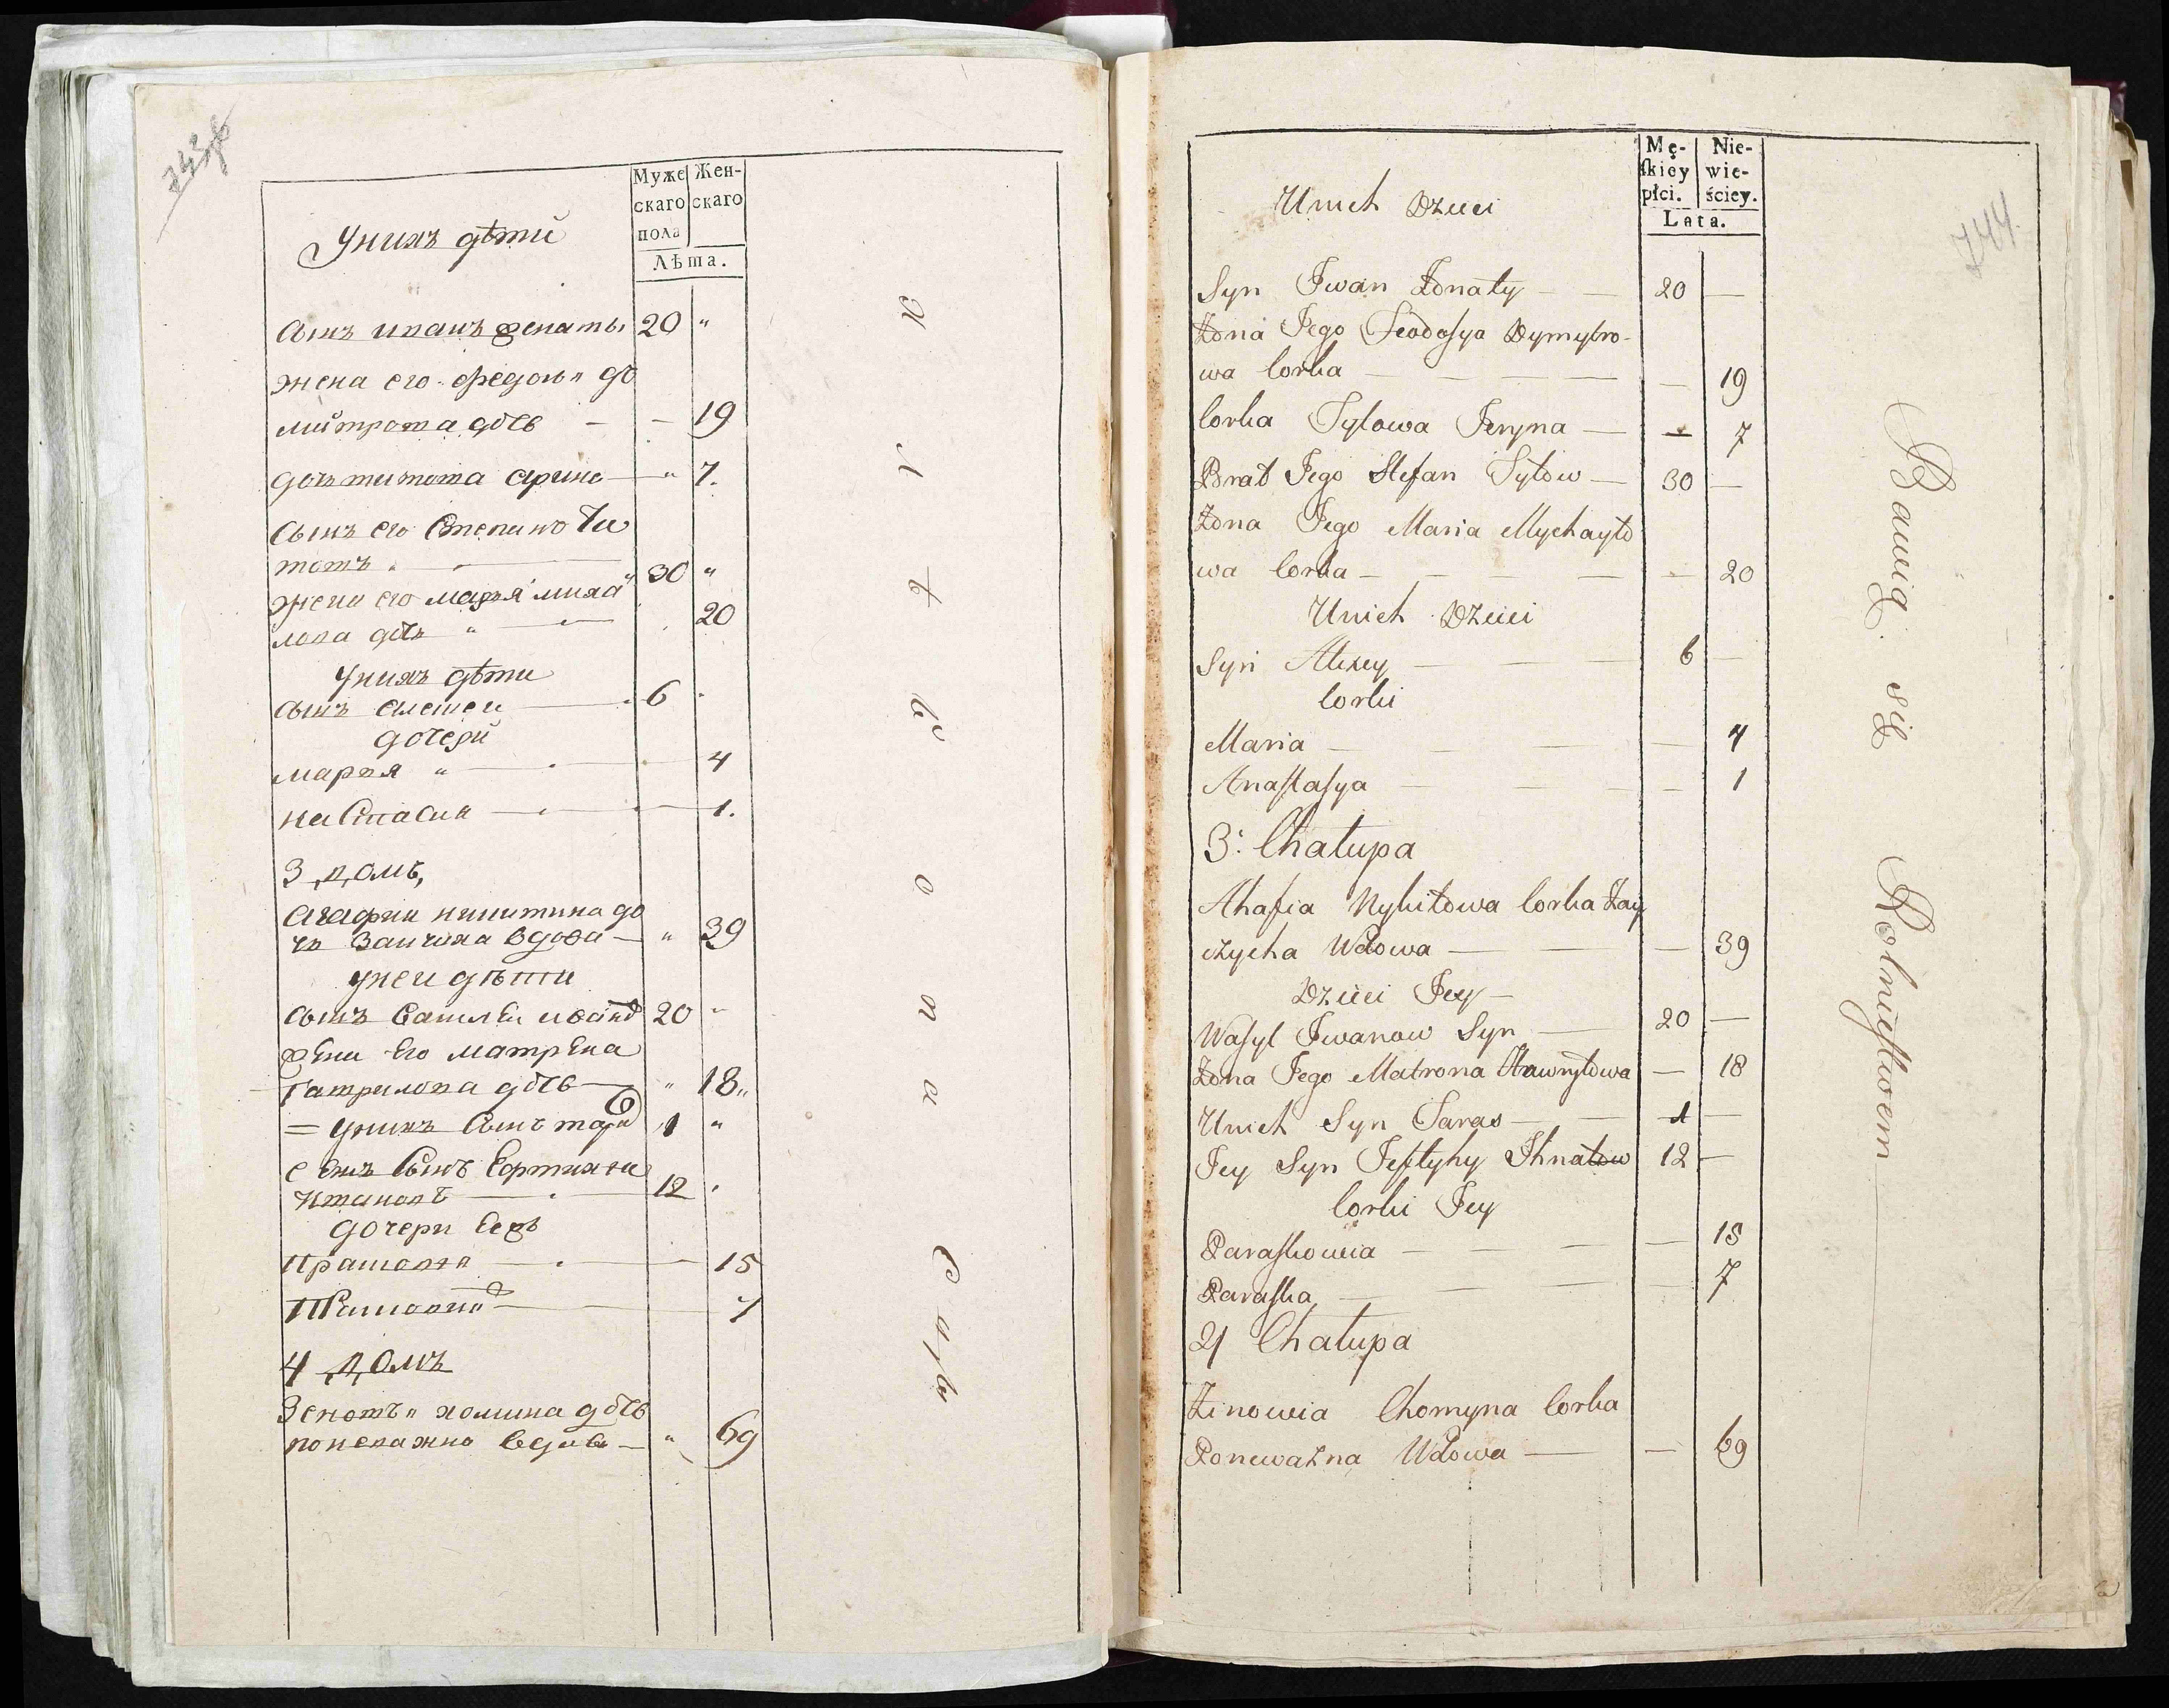 743об
Муже
скаго
пола
Жен-
скаго
Лѣта.
Унихъ дѣтй
сынъ иванъ женаты 20 "
жена его федосья до
митрова дочь - - 19
дочь титова арина — " 7.
сынъ его Степанъ ти
товъ 30 "
жена его марья миха
лова дочь " — 20
Унихъ дѣти
сынъ алексеи — 6
дочери
марья " — 4
настасия — 1.
3 домъ,
агафия никитина до
чь вдова — " 39
унеи дѣти
сынъ василеи ивановъ 20 "
жена его матрена
гаврилова дочь — " 18"
= унихъ сынъ тарасъ 1 "
ея сынъ
12
дочери еежъ
15
7
4 домъ
Зеновъя хомина дочь
поневажна вдова — " 69
744.
Mę-
skiey
płci.
Nie-
wie-
ściey.
Lata.
Unich Dzieci
Syn Jwan Żonaty — 20 —
Żona Jego Feodosya Dymytro-
wa Corka — — 19
Corka Tytowa Jeryna — — 7
Brat Jego Stefan Tytow — 30 —
Żona Jego Maria Mychayło
wa Corka — — 20
Unich Dzieci
Syn Alexey — 6 —
Corki
Maria — — 4
Anastasya — — 1
3: Chałupa
Ahafia Nykitowa Corka Zay
czycha Wdowa — — 39
Dzieci Jey —
Wasyl Jwanow Syn — 20 —
Żona Jego Matrona Hawryłowa — 18
Unich Syn Taras — 1 —
Jey Syn Jeftyhy Ihnatow 12 —
Corki Jey
Paraskowia — — 15
Paraska — — 7
4 Chałupa
Zinowia Chomyna Corka
Poneważna Wdowa — — 69
Bawią się Rolnictwem